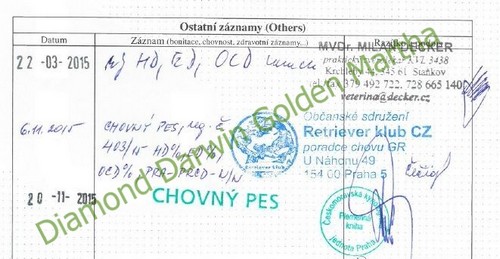 Ostatní záznamy (Others)
Datum Záznam (bonitace, chovnost, zdravotní záznamy...)
22 -03- 2015 HD, ED, OCD
MVDr. MILAN DECKER
3438
345 61 Staňkov
tel. 379 492 722, 728 665 140
veterina@decker.cz
6.11.2015 CHOVNÝ PES,
403/15 HD 0/0, ED 0/0
OCD PRA-PRCD-N/N
Občanské sdružení
Retriever klub CZ
poradce chovu GR
U Náhonu/49
154 00 Praha 5
20 -11- 2015
CHOVNÝ PES
Českomoravská
Plemenná
kniha
jednota Praha
Diamond Darwin Golden Mantha